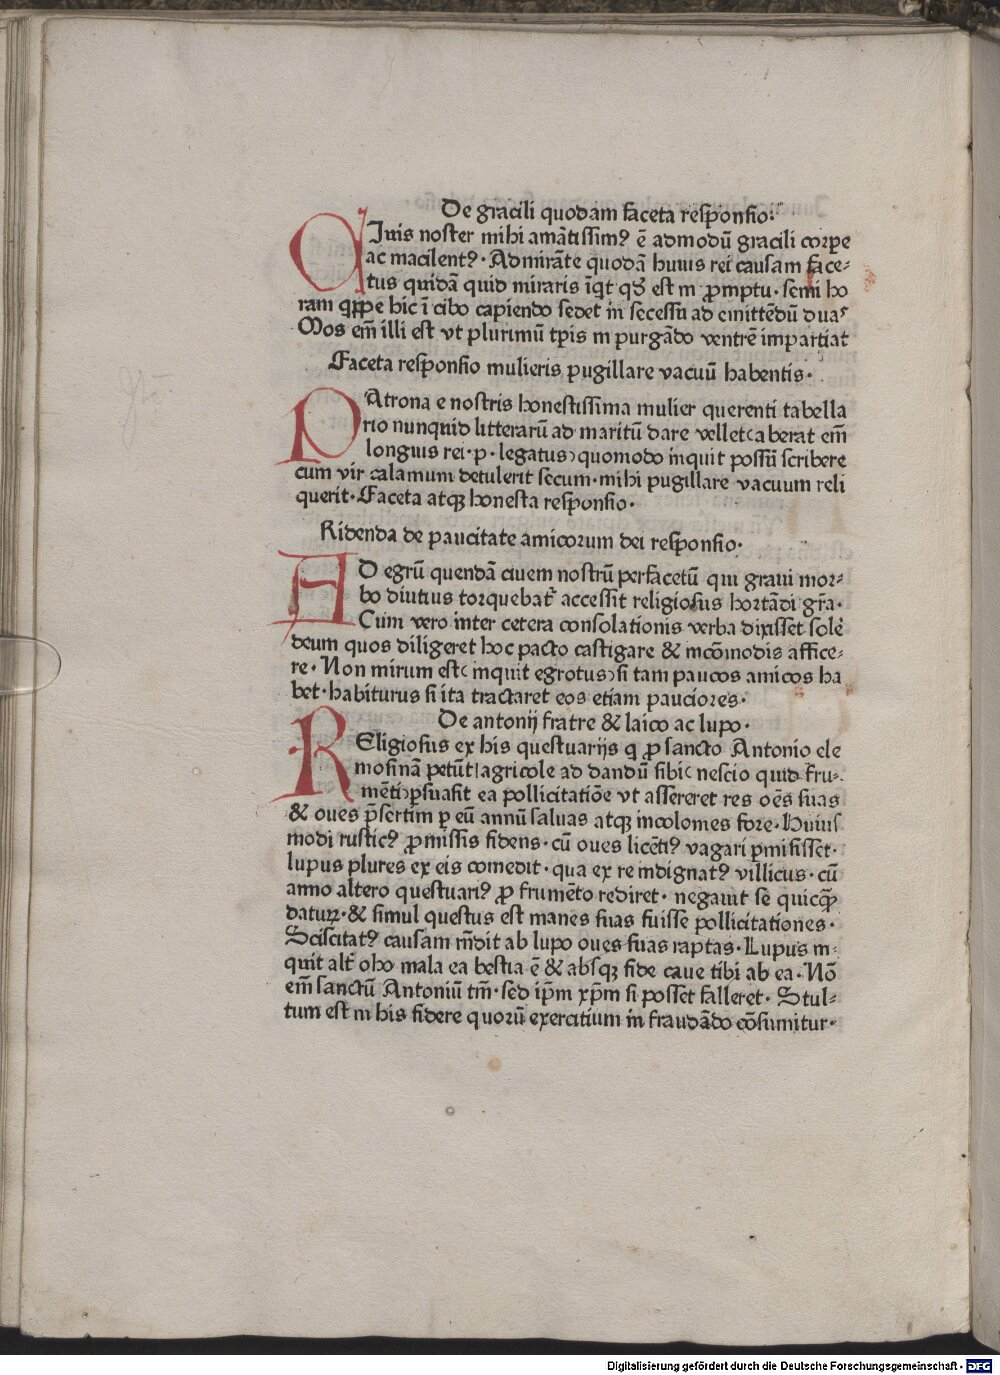 De gracili quodam faceta responsio·
CJuis noster mihi amātissimꝰ ē admodū gracili corpe
ac macilentꝰ· Admirāte quodā huius rei causam face-
tus quidā quid miraris īqt qd̕ est in ꝓmptu· semi ho
ram qppe hic ī cibo capiendo sedet in secessu ad emittēdū duas
Mos em̄ illi est vt plurimū tp̄is in purgādo ventrē impartiat
Faceta responsio mulieris pugillare vacuū habentis·
PAtrona e nostris honestissima mulier querenti tabella
rio nunquid litterarū ad maritū dare vellet(aberat em̄
longius rei·p·legatus)quomodo inquit possū scribere
cum vir calamum detulerit secum·mihi pugillare vacuum reli
querit· Faceta atqꝫ honesta responsio·
Ridenda de paucitate amicorum dei responsio·
AD egrū quendā ciuem nostrū perfacetū qui graui mor-
bo diutius torquebat᷑ accessit religiosus hortādi gr̄a·
Cum vero inter cetera consolationis verba dixisset solē
deum quos diligeret hoc pacto castigare & incōmodis affice-
re· Non mirum est(inquit egrotus)si tam paucos amicos ha
bet·habiturus si ita tractaret eos etiam pauciores·
De antonij fratre & laico ac lupo·
REligiosus ex his questuarijs q ꝓ sancto Antonio ele
mosinā petūt|agricole ad dandū sibi(nescio quid fru-
mēti)ꝑsuasit ea pollicitatiōe vt assereret res oēs suas
& oues p̄sertim ꝑ eū annū saluas atqꝫ incolomes fore· Huius
modi rusticꝰ ꝓmissis fidens·cū oues licētiꝰ vagari ꝑmisisset·
lupus plures ex eis comedit·qua ex re indignatꝰ villicus·cū
anno altero questuariꝰ ꝓ frumēto rediret·negauit se quicꝙ̄
daturꝝ·& simul questus est inanes suas fuisse pollicitationes·
Sciscitatꝰ causam rn̄dit ab lupo oues suas raptas·Lupus in-
quit alt᷑ oho mala ea bestia ē & absqꝫ fide caue tibi ab ea·Nō
em̄ sanctū Antoniū tm̄·sed ip̄m xp̄m si posset falleret· Stul-
tum est in his fidere quorū exercitium in fraudādo cōsumitur·
Digitalisierung gefördert durch die Deutsche Forschungsgemeinschaft · DFG